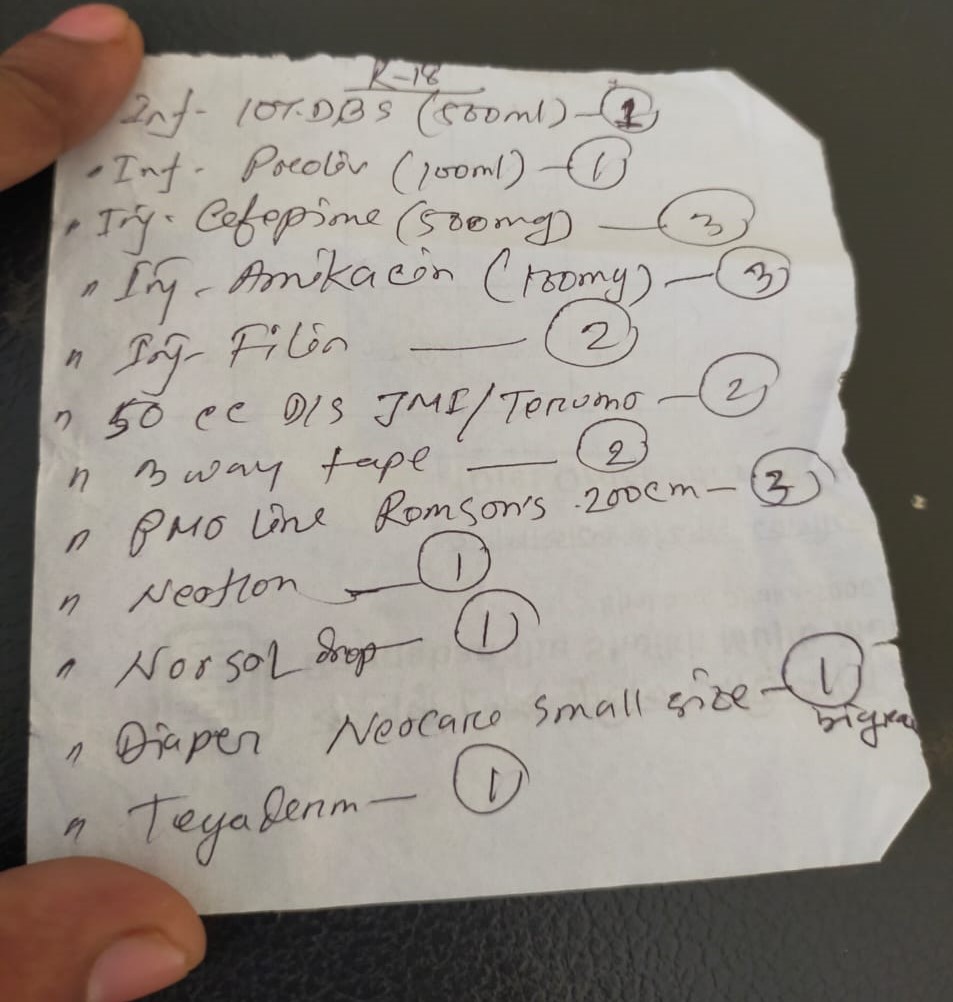 K-18
Inf- 10%.DBS (500ml)-1
Inf- Procoliv (100ml)-1
Inj- Cefepime (500mg)-3
Inj- Amikacin (100mg)-3
Inj- Filin-2
50 cc D/S JMI/Terumo-2
3 way tape-2
PMO Line Romson's 200cm-3
Neoflon-1
Norsol drop-1
Diaper Neocare small size-1
Tegaderm-1